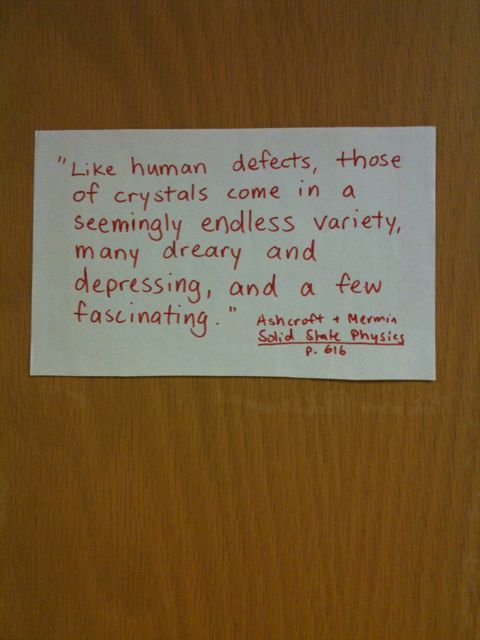 "Like human defects, those
of crystals come in a
seemingly endless variety,
many dreary and
depressing, and a few
fascinating."
Ashcroft + Mermin
Solid State Physics
p. 616